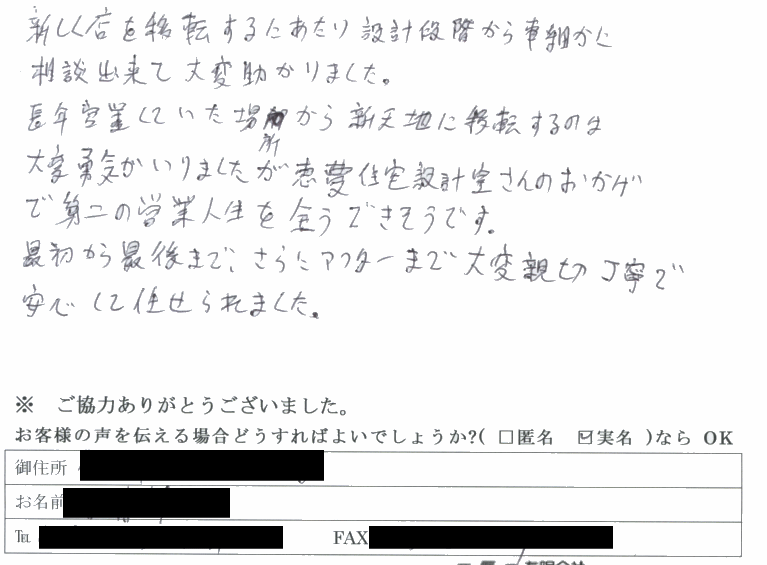 新しく店を移転するにあたり設計段階から事細かに
相談出来て大変助かりました。
長年営業していた場所から新天地に移転するのは
大変勇気がいりましたが恵夢住宅設計室さんのおかげ
で第二の営業人生を全うできそうです。
最初から最後まで、さらにアフターまで大変親切丁寧で
安心して任せられました。
※ ご協力ありがとうございました。
お客様の声を伝える場合どうすればよいでしょうか?( □匿名 ☑実名 )なら OK
御住所
お名前
℡ FAX